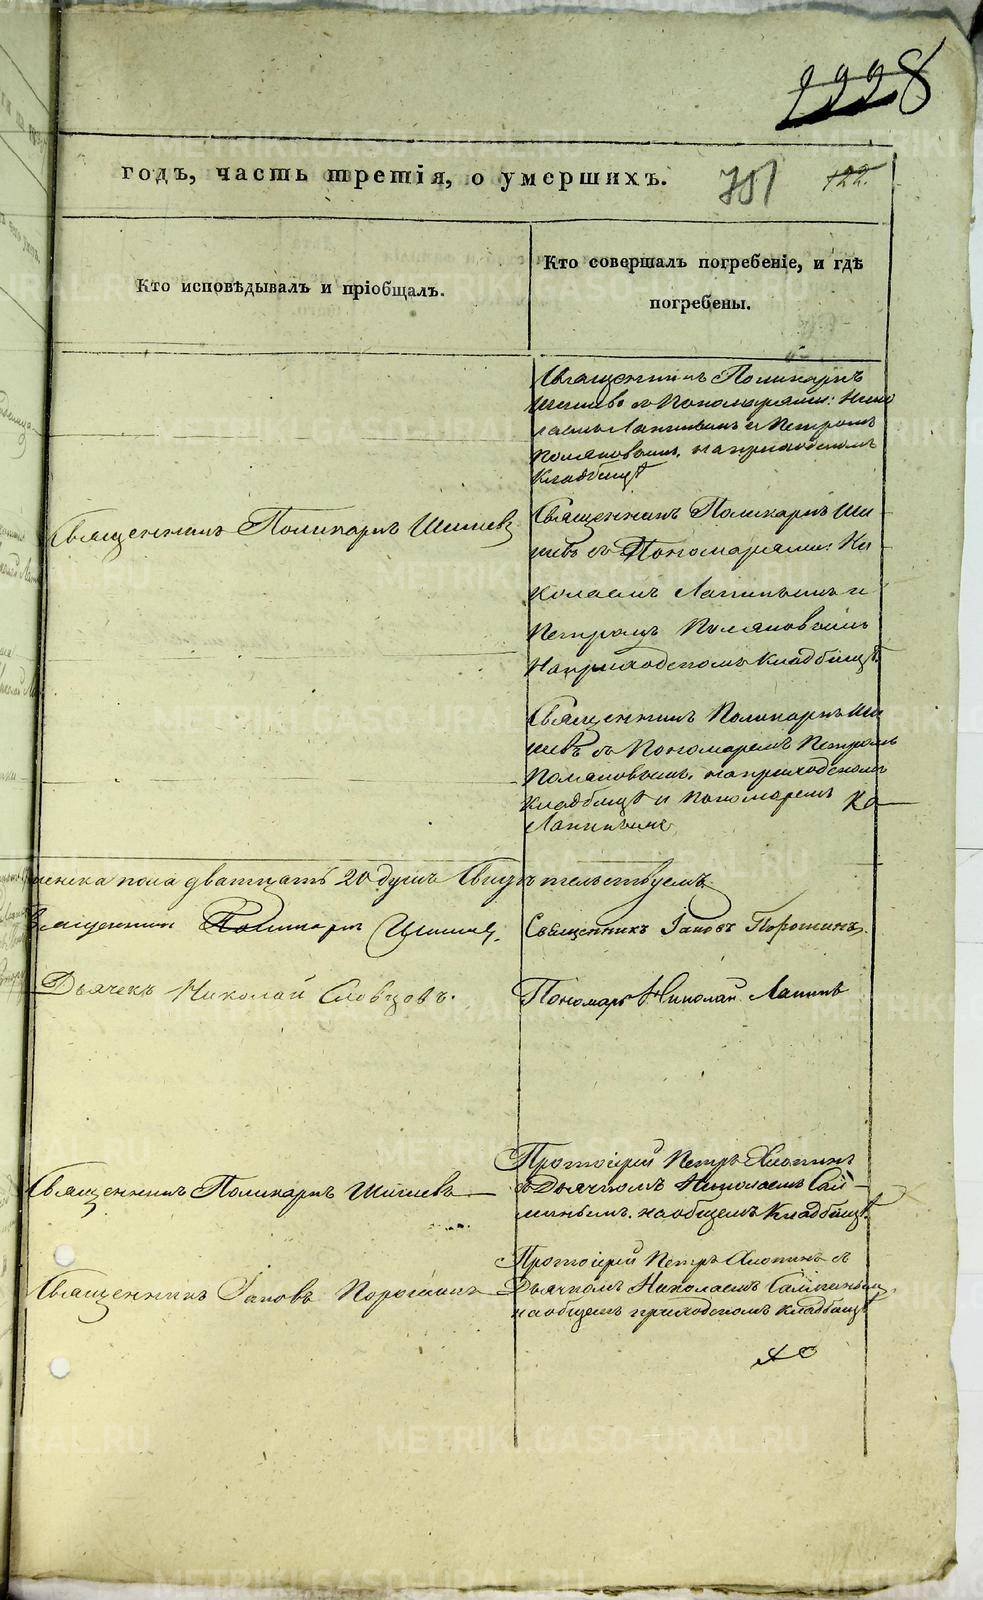 2228
годъ, часть третія, о умершихъ. 781 122.
Кто исповѣдывалъ и пріобщалъ.
Кто совершалъ погребеніе, и гдѣ
погребены.
Священникъ Поликарпъ
Шишевъ съ Пономарями: Нико
лаемъ Лапинымъ и Петромъ
на приходскомъ
Кладбищѣ
Священникъ Поликарпъ Шишевъ
Священникъ Поликарпъ Ши
шевъ съ Пономарями: Ни
колаемъ Лапинымъ и
Петромъ
На приходскомъ Кладбищѣ.
Священникъ Поликарпъ Ши
шевъ съ Пономаремъ Петромъ
на приходскомъ
Кладбищѣ и Пономаремъ
Лапинымъ
женска пола дватцать 20 душъ Свидѣтельствуемъ
Священникъ Поликарпъ Шишевъ.
Священникъ Іаковъ Порошинъ.
Дьячекъ Николай Словцовъ.
Пономарь Николай Лапинъ
Священникъ Поликарпъ Шишевъ
Протоіерей Петръ Хлопинъ
съ Дьячкомъ Николаемъ
на общемъ Кладбищѣ.
Священникъ Іаковъ Порошинъ
Протоіерей Петръ Хлопинъ съ
Дьячкомъ Николаемъ
на общемъ приходскомъ кладбищѣ
METRIKI.GASO-URAL.RU